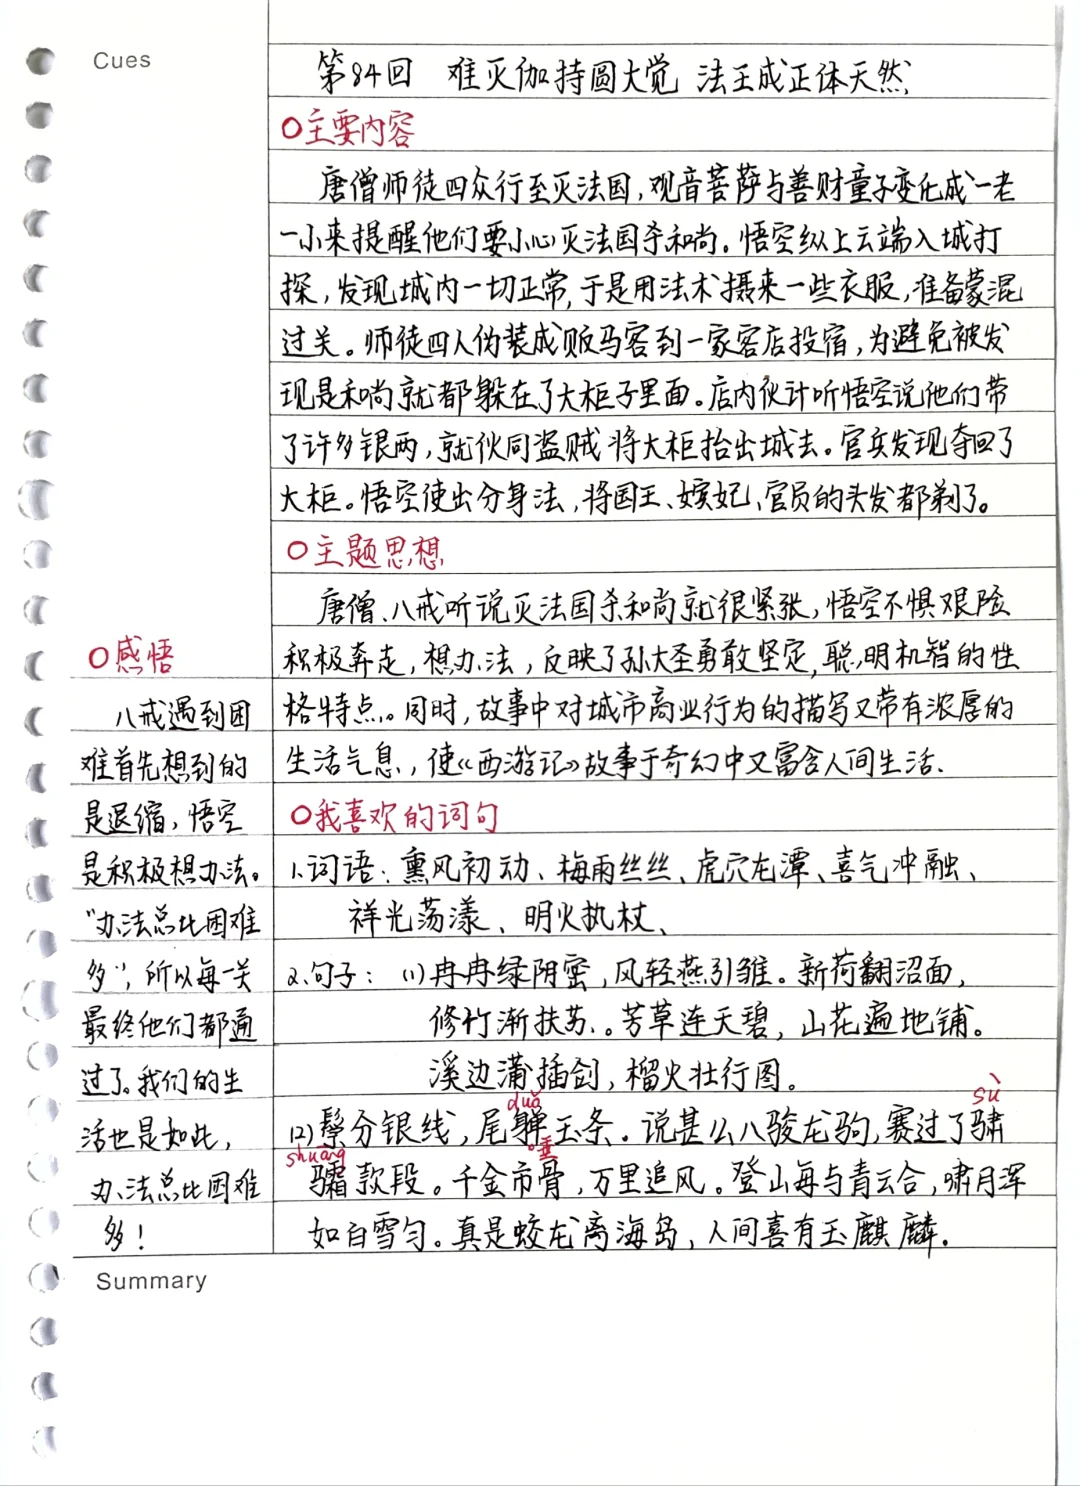 Cues
第84回 难灭伽持圆大觉 法王成正体天然
○主要内容
唐僧师徒四众行至灭法国,观音菩萨与善财童子变化成一老
一小来提醒他们要小心灭法国杀和尚。悟空纵上云端入城打
探,发现城内一切正常,于是用法术摄来一些衣服,准备蒙混
过关。师徒四人伪装成贩马客到一家客店投宿,为避免被发
现是和尚就都躲在了大柜子里面。店内伙计听悟空说他们带
了许多银两,就伙同盗贼将大柜抬出城去。官兵发现夺回了
大柜。悟空使出分身法,将国王、嫔妃、官员的头发都剃了。
○主题思想
唐僧、八戒听说灭法国杀和尚就很紧张,悟空不惧艰险
积极奔走,想办法,反映了孙大圣勇敢坚定,聪明机智的性
格特点。同时,故事中对城市商业行为的描写又带有浓厚的
生活气息,使《西游记》故事于奇幻中又富含人间生活.
○我喜欢的词句
1.词语:熏风初动、梅雨丝丝、虎穴龙潭、喜气冲融、
祥光荡漾、明火执杖、
2.句子:(1)冉冉绿阴密,风轻燕引雏。新荷翻沼面,
修竹渐扶苏。芳草连天碧,山花遍地铺。
溪边蒲插剑,榴火壮行图。
duǒ
sù
(2)鬃分银线,尾亸玉条。说甚么八骏龙驹,赛过了骕
shuāng
垂
骦款段。千金市骨,万里追风。登山每与青云合,啸月浑
如白雪匀。真是蛟龙离海岛,人间喜有玉麒麟.
○感悟
八戒遇到困
难首先想到的
是退缩,悟空
是积极想办法。
"办法总比困难
多",所以每一关
最终他们都通
过了。我们的生
活也是如此,
办法总比困难
多!
Summary